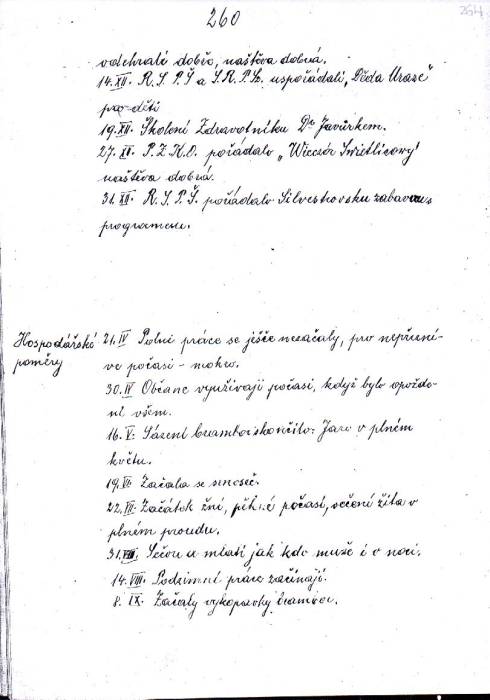 260
264
odehrali dobře, naštěva dobrá.
14.XII. R.S.P.Š a S.R.P.Š. uspořádali, „Děda Mraze"
pro děti
19.XII. Školení Zdravotníku Dr Javůrkem.
27. XII. P.Z.K.O. pořádalo „Wieczór Świetlicowy"
naštěva dobrá.
31. XII. R.S.P.Š. pořádalo Silvestrovsku zabavu s
programem.
Hospodářské
poměry
21. IV Polní práce se ješče nezačaly, pro nepřizni-
ve počasi - mokro.
30. IV Občane využívaji počasi, když bylo opožde-
ní všem.
16. V. Sázení brambor skončilo. Jaro v plném
květu.
19. VI. Začala se senoseč.
22. VII. Začátek žní, pěkné počasi, sečení žita v
plném proudu.
31. VII. Sečou a mlatí jak kdo muže i v noci.
14. VIII. Podzimní práce začínají.
8. IX. Začaly vykopavky brambor.